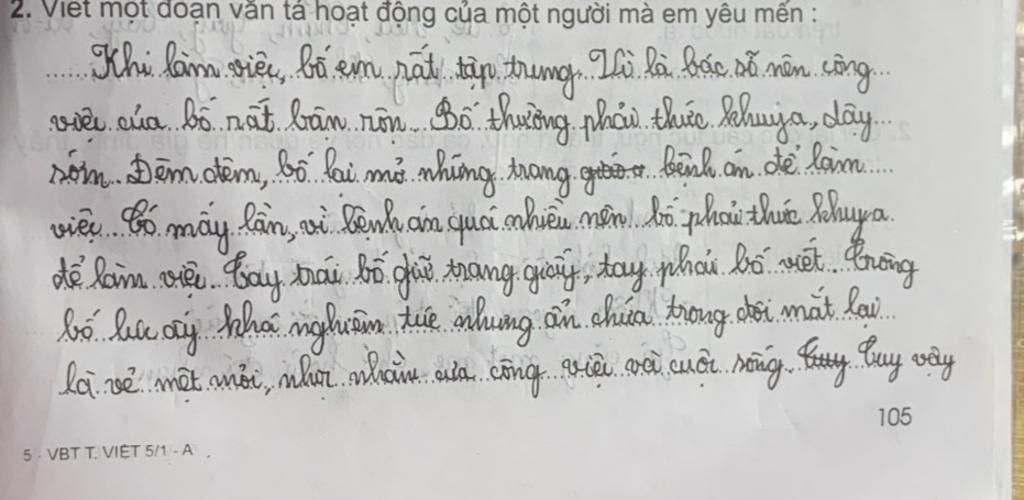 2. Viết một đoạn văn tả hoạt động của một người mà em yêu mến :
Khi làm việc, bố em rất tập trung. Vì là bác sĩ nên công
việc của bố rất bận rộn. Bố thường phải thức khuya, dậy
sớm. Đêm đêm, bố lại mở những trang bệnh án để làm
việc. Có mấy lần, vì bệnh án quá nhiều nên bố phải thức khuya
để làm việc. Tay trái bố giữ trang giấy, tay phải bố viết. Trông
bố lúc ấy khá nghiêm túc nhưng ẩn chứa trong đôi mắt lại
là vẻ mệt mỏi, nhọc nhằn của công việc và cuộc sống. Tuy vậy
105
5 - VBT T. VIỆT 5/1 - A